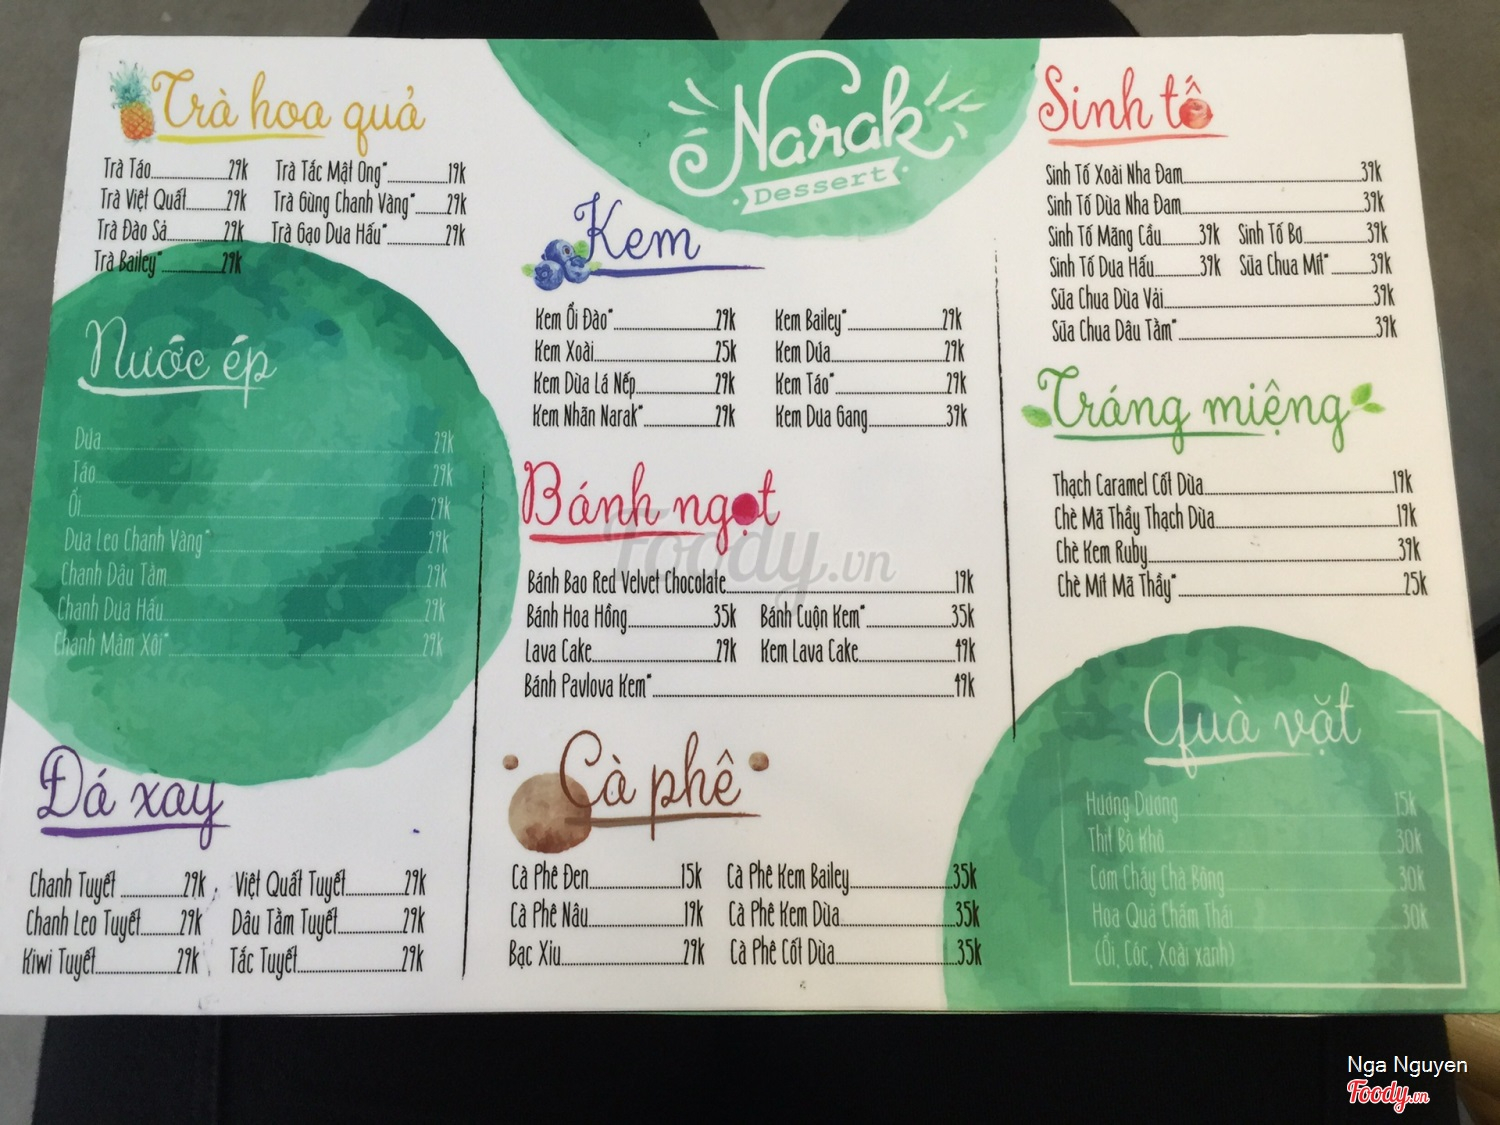 Narak
Dessert
Trà hoa quả
Trà Táo 29k
Trà Việt Quất 29k
Trà Đào Sả 29k
Trà Bailey* 29k
Trà Tắc Mật Ong* 19k
Trà Gừng Chanh Vàng* 29k
Trà Gạo Dưa Hấu* 29k
Nước ép
Dứa 29k
Táo 29k
Ổi 29k
Dưa Leo Chanh Vàng* 29k
Chanh Dâu Tằm 29k
Chanh Dưa Hấu 29k
Chanh Mâm Xôi* 29k
Đá xay
Chanh Tuyết 29k
Chanh Leo Tuyết 29k
Kiwi Tuyết 29k
Việt Quất Tuyết 29k
Dâu Tằm Tuyết 29k
Tắc Tuyết 29k
Kem
Kem Ổi Đào* 29k
Kem Xoài 25k
Kem Dừa Lá Nếp 29k
Kem Nhãn Narak* 29k
Kem Bailey* 29k
Kem Dứa 29k
Kem Táo* 29k
Kem Dưa Gang 39k
Bánh ngọt
Bánh Bao Red Velvet Chocolate 19k
Bánh Hoa Hồng 35k
Bánh Cuộn Kem* 35k
Lava Cake 29k
Kem Lava Cake 49k
Bánh Pavlova Kem* 49k
Cà phê
Cà Phê Đen 15k
Cà Phê Nâu 19k
Bạc Xỉu 29k
Cà Phê Kem Bailey 35k
Cà Phê Kem Dừa 35k
Cà Phê Cốt Dừa 35k
Sinh tố
Sinh Tố Xoài Nha Đam 39k
Sinh Tố Dừa Nha Đam 39k
Sinh Tố Mãng Cầu 39k
Sinh Tố Bơ 39k
Sinh Tố Dưa Hấu 39k
Sữa Chua Mít* 39k
Sữa Chua Dừa Vải 39k
Sữa Chua Dâu Tằm* 39k
Tráng miệng
Thạch Caramel Cốt Dừa 19k
Chè Mã Thầy Thạch Dừa 19k
Chè Kem Ruby 39k
Chè Mít Mã Thầy* 25k
Quà vặt
Hướng Dương 15k
Thịt Bò Khô 30k
Cơm Cháy Chà Bông 30k
Hoa Quả Chấm Thái 30k
(Ổi, Cóc, Xoài xanh)
Foody.vn
Nga Nguyen
Foody.vn